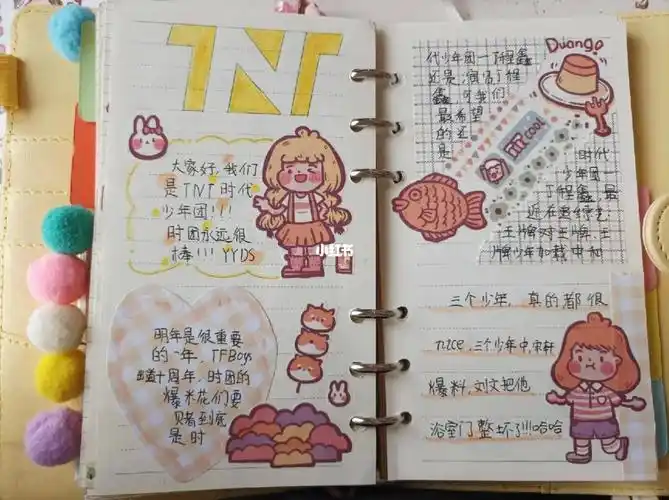 TNT
大家好,我们
是TNT时代
少年团!!!
时团永远很
棒!!! YYDS
小红书
明年是很重要
的一年,TFBoys
十周年,时团的
爆米花们要
赌到底
是时
代少年团一丁程鑫
还是演员丁程
鑫,可我们
最希望
的还
是
Duang~
COOL
时代
少年团一
丁程鑫,最
近在追综艺:
王牌对王牌,王
牌少年加载中和
三个少年,真的都很
nice,三个少年中,宋轩
爆料,刘文把他
浴室门整坏了!!!哈哈